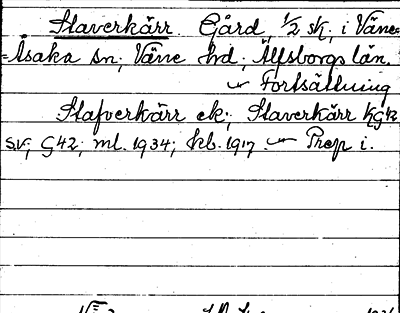 Staverkärr Gård, 1/2 sk, i Väne=
=Åsaka sn; Väne hd; Älfsborgs län.
Fortsättning
Stafverkärr ek; Staverkärr KG42
SV, G42; ml. 1934; kb. 1917. Prep i.